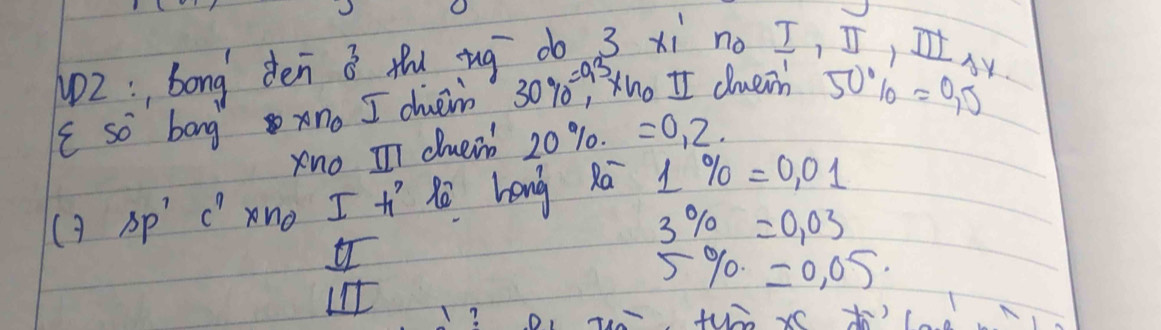 VD2: Bóng đèn ở thị trg do 3 xí no I, II, III sx.
Σ số bóng xno I chiếm 30% = 0,3, xno II chiếm 50% = 0,5
xno III chiếm 20%. = 0,2.
sp' c' xno I tỉ lệ hỏng là 1% = 0,01
II 3% = 0,03
III 5%. = 0,05.